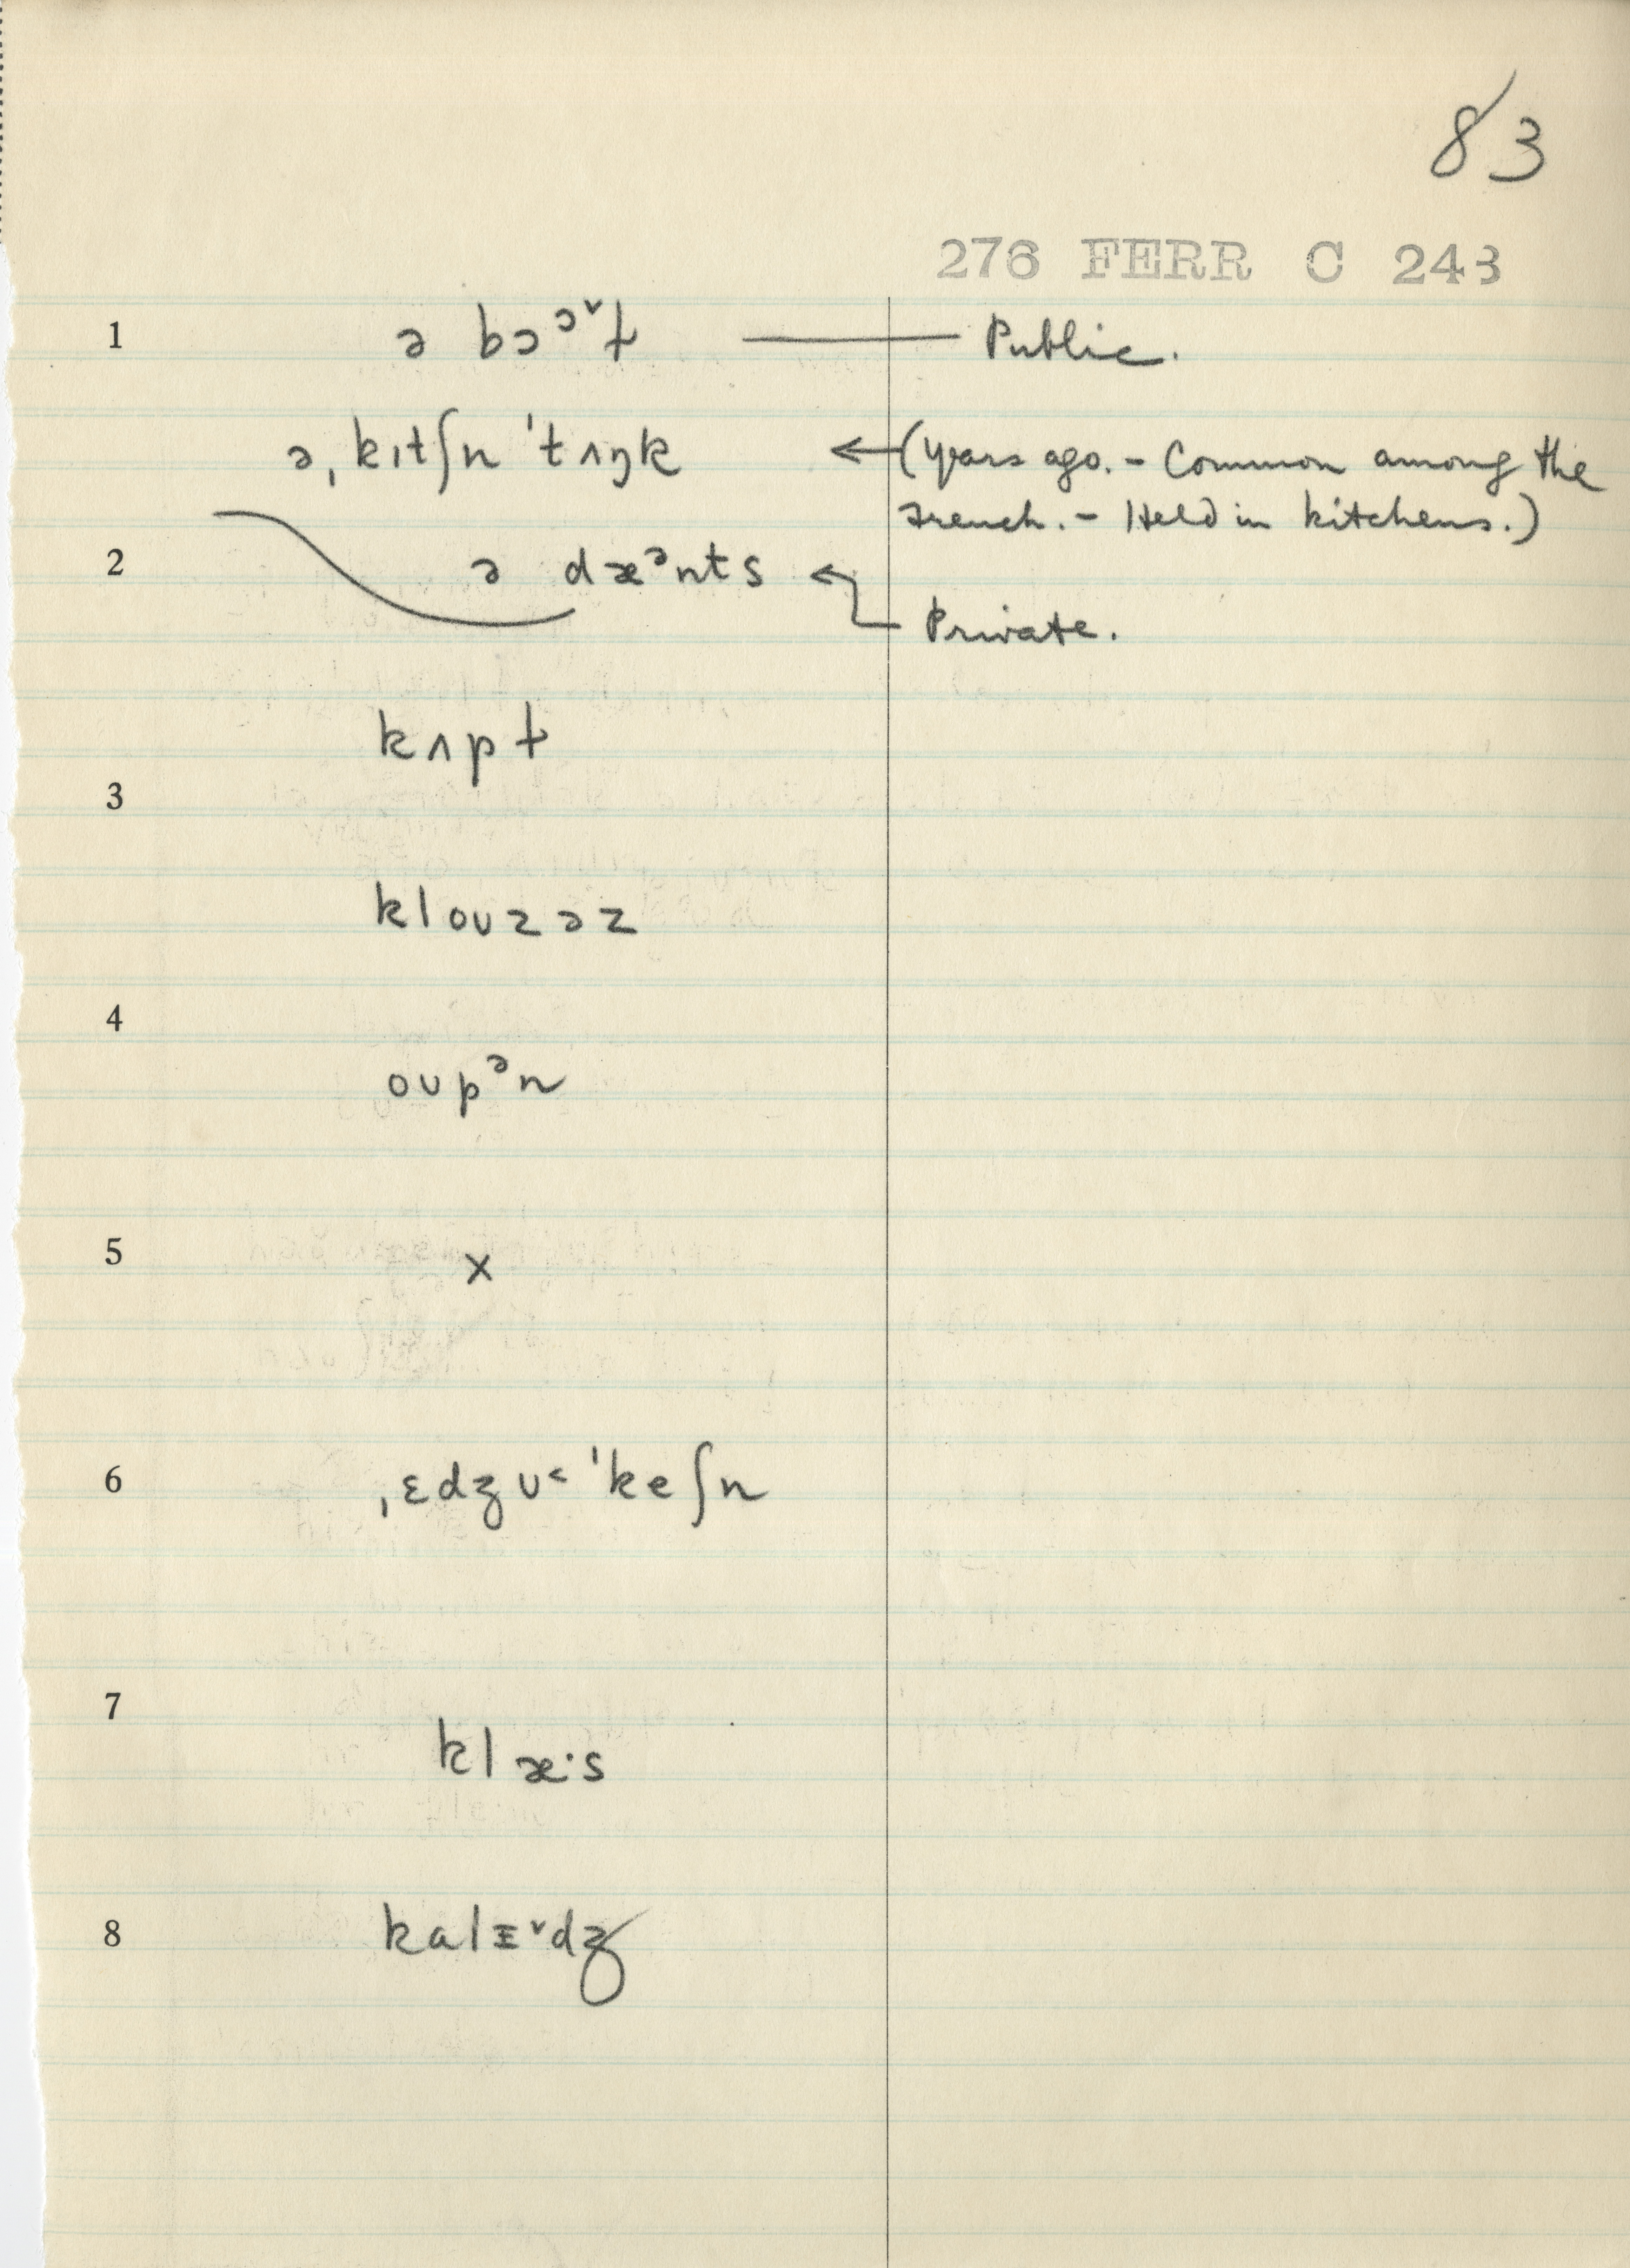 83
276 FERR C 243
1 ə bɔᵓ˅ɫ — Public.
ə ˌkɪtʃn ˈtʌŋk ← (years ago. - Common among the
French. - Held in kitchens.)
2 ə dæᵊnts
Private.
kʌpɫ
3
klouzəz
4
oupᵊn
5 x
6 ˌɛdʒʊ˂ ˈkeʃn
7
klæ·s
8 kalɪ˅dʒ